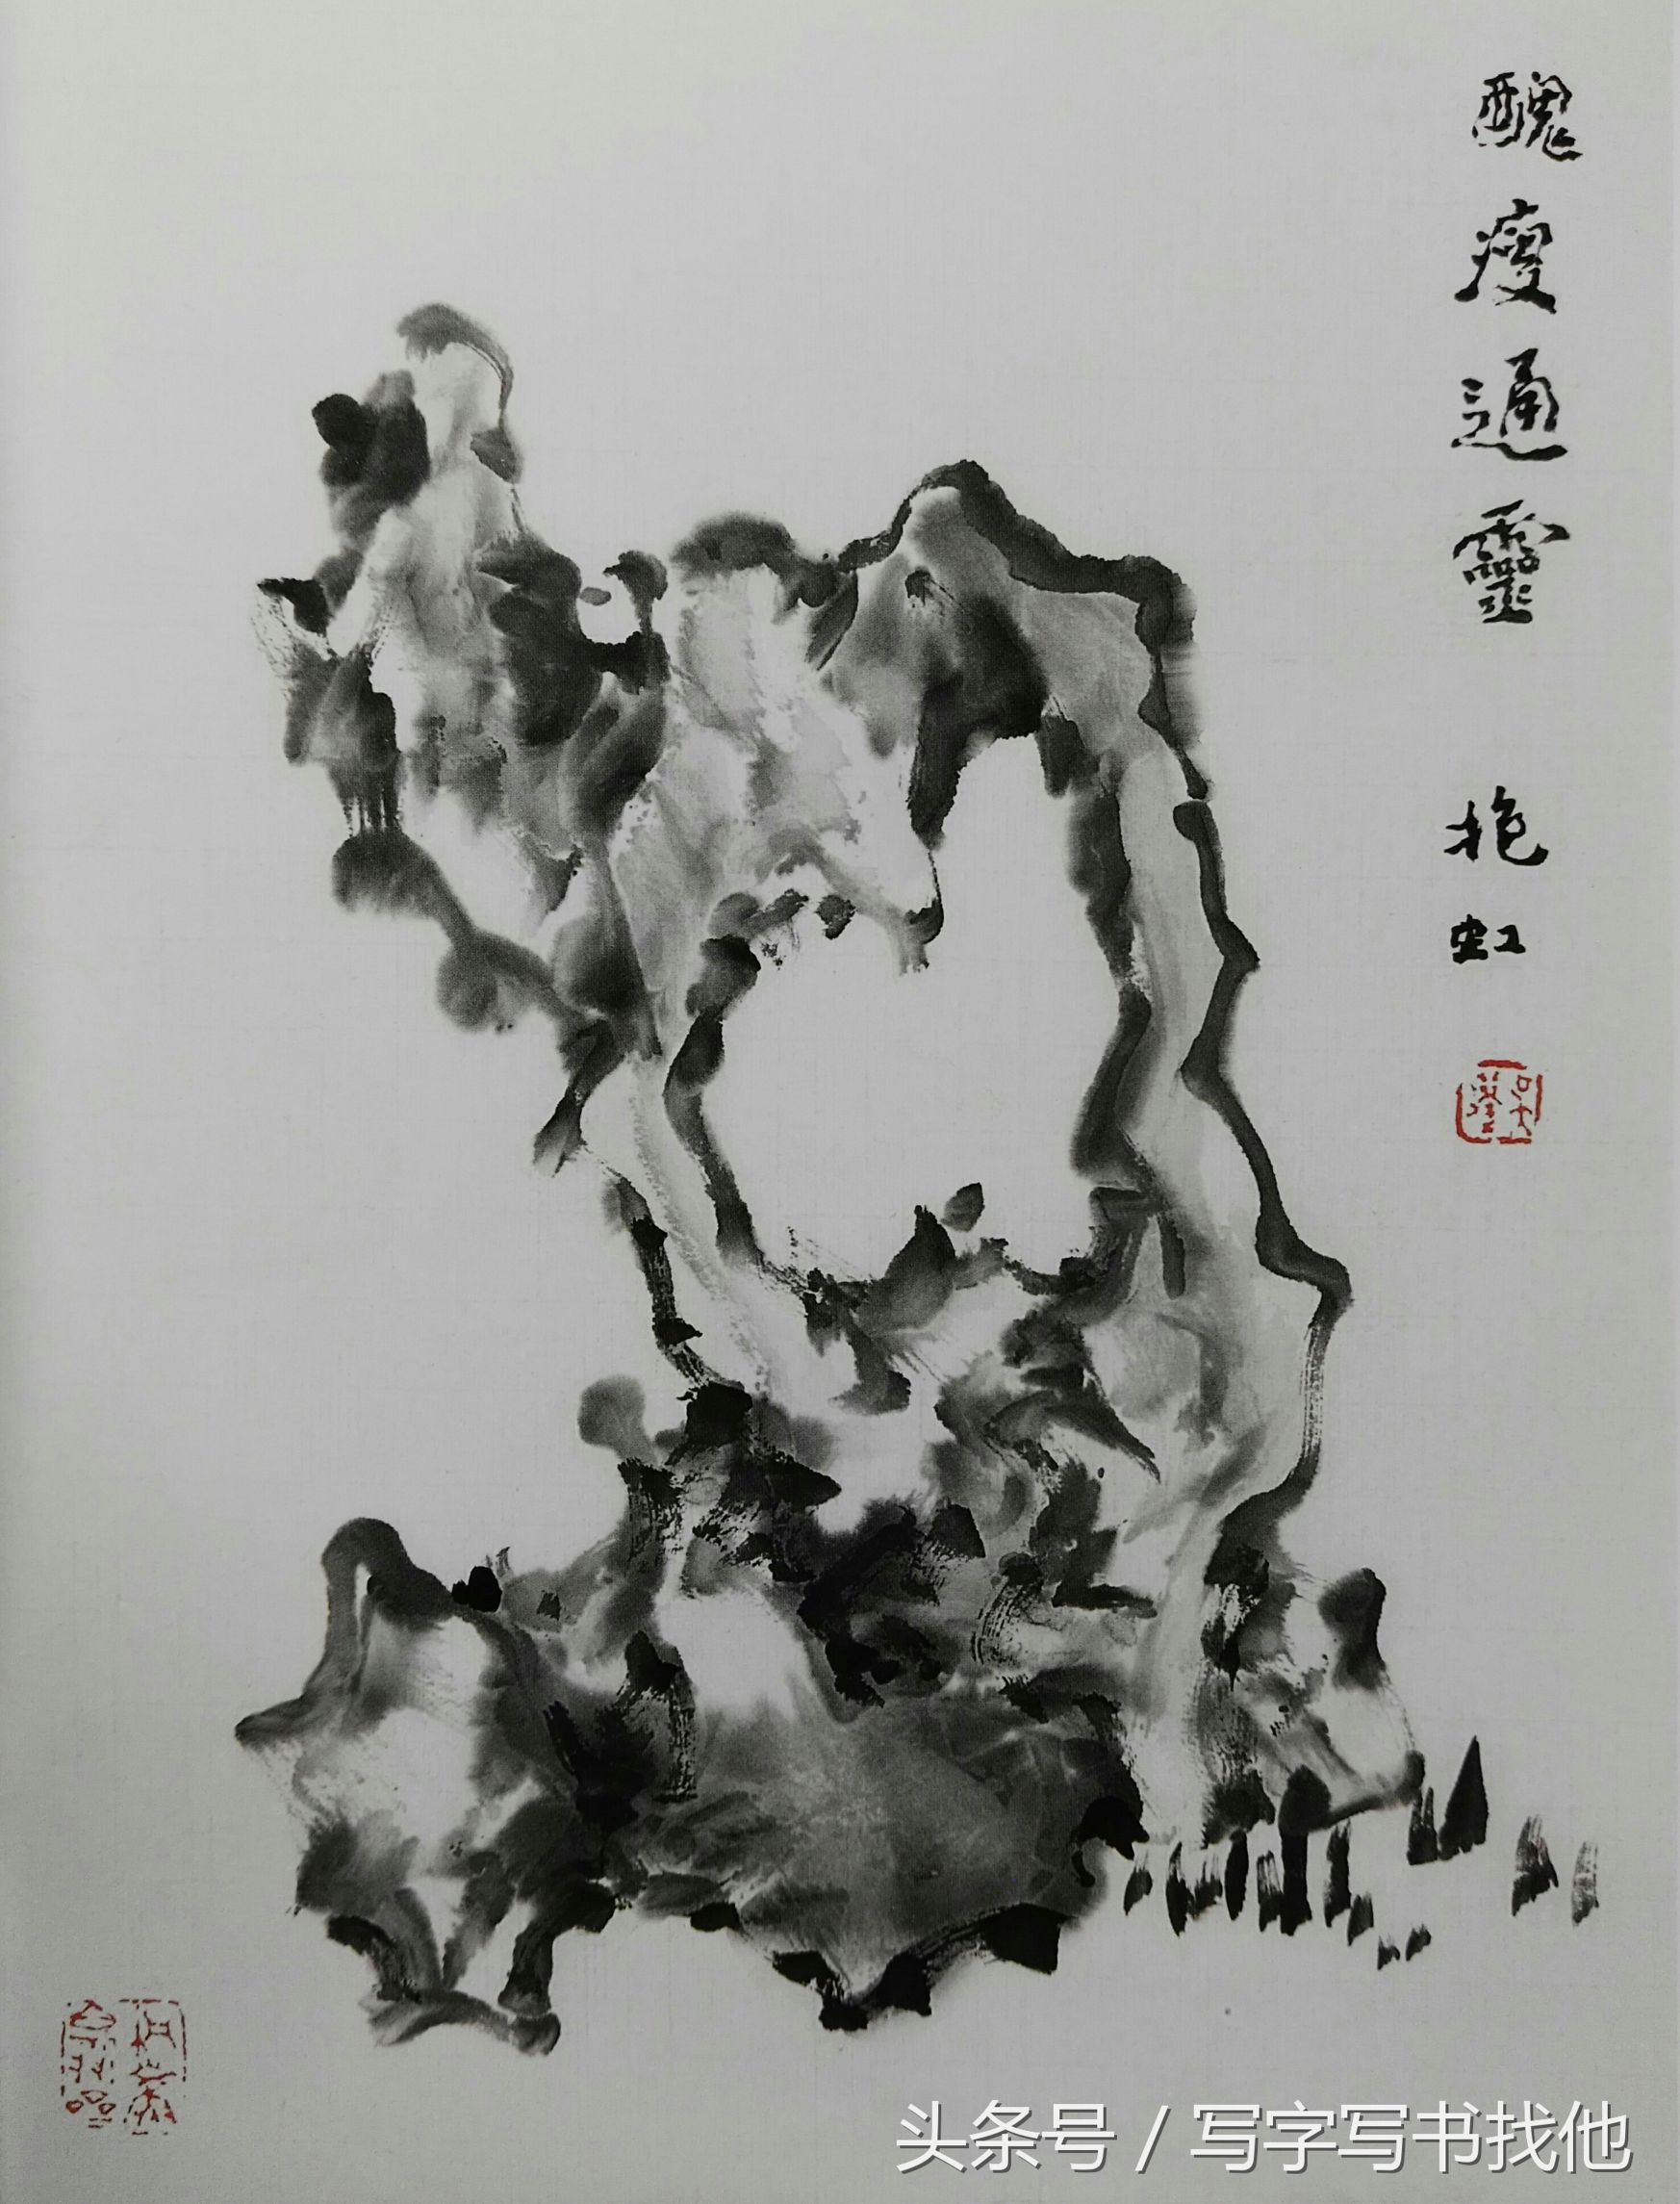 醜瘦通靈 抱虹
头条号 / 写字写书找他